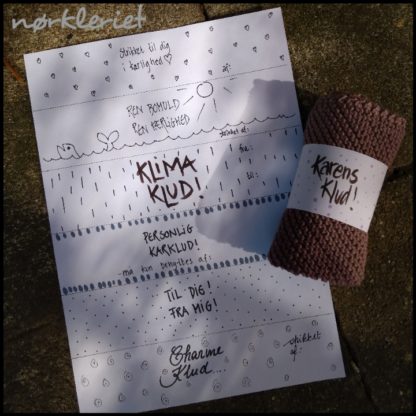 nørkleriet
Strikket til dig
i kærlighed
af:
REN BOMULD
REN KÆRLIGHED
strikket af:
KLIMA
KLUD!
fra:
til:
PERSONLIG
KARKLUD!
- må kun benyttes af:
TIL DIG!
FRA MIG!
Charme
Klud...
strikket
af:
Karens
Klud!